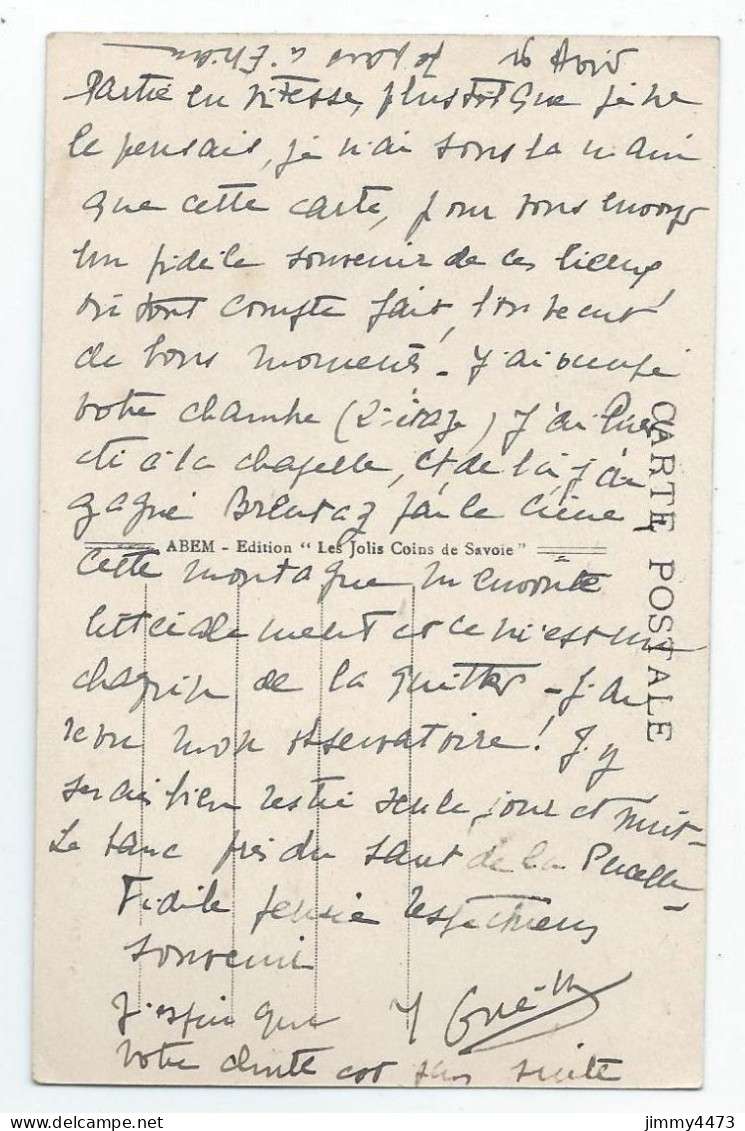 16 Août Je pars à Evian
Partie en vitesse, plus tôt que je ne
le pensais, je n'ai sous la main
que cette carte, pour vous envoyer
un fidèle souvenir de ces lieux
où tout compte fait, l'on vécut
de bons moments - J'ai occupé
votre chambre (2e étage) J'ai
à la chapelle, et de là j'ai
gagné Brentaz par le
ABEM - Edition " Les Jolis Coins de Savoie "
CARTE POSTALE
Cette montagne m'envoûte
littéralement et ce m'est un
chagrin de la quitter - J'ai
revu mon observatoire! J'y
serais bien restée seule, jour et nuit -
Le banc près du Saut de la Pucelle -
Fidèle pensée respectueux
souvenir
Y
J'espère que
votre chute est sans suite
jimmy4473